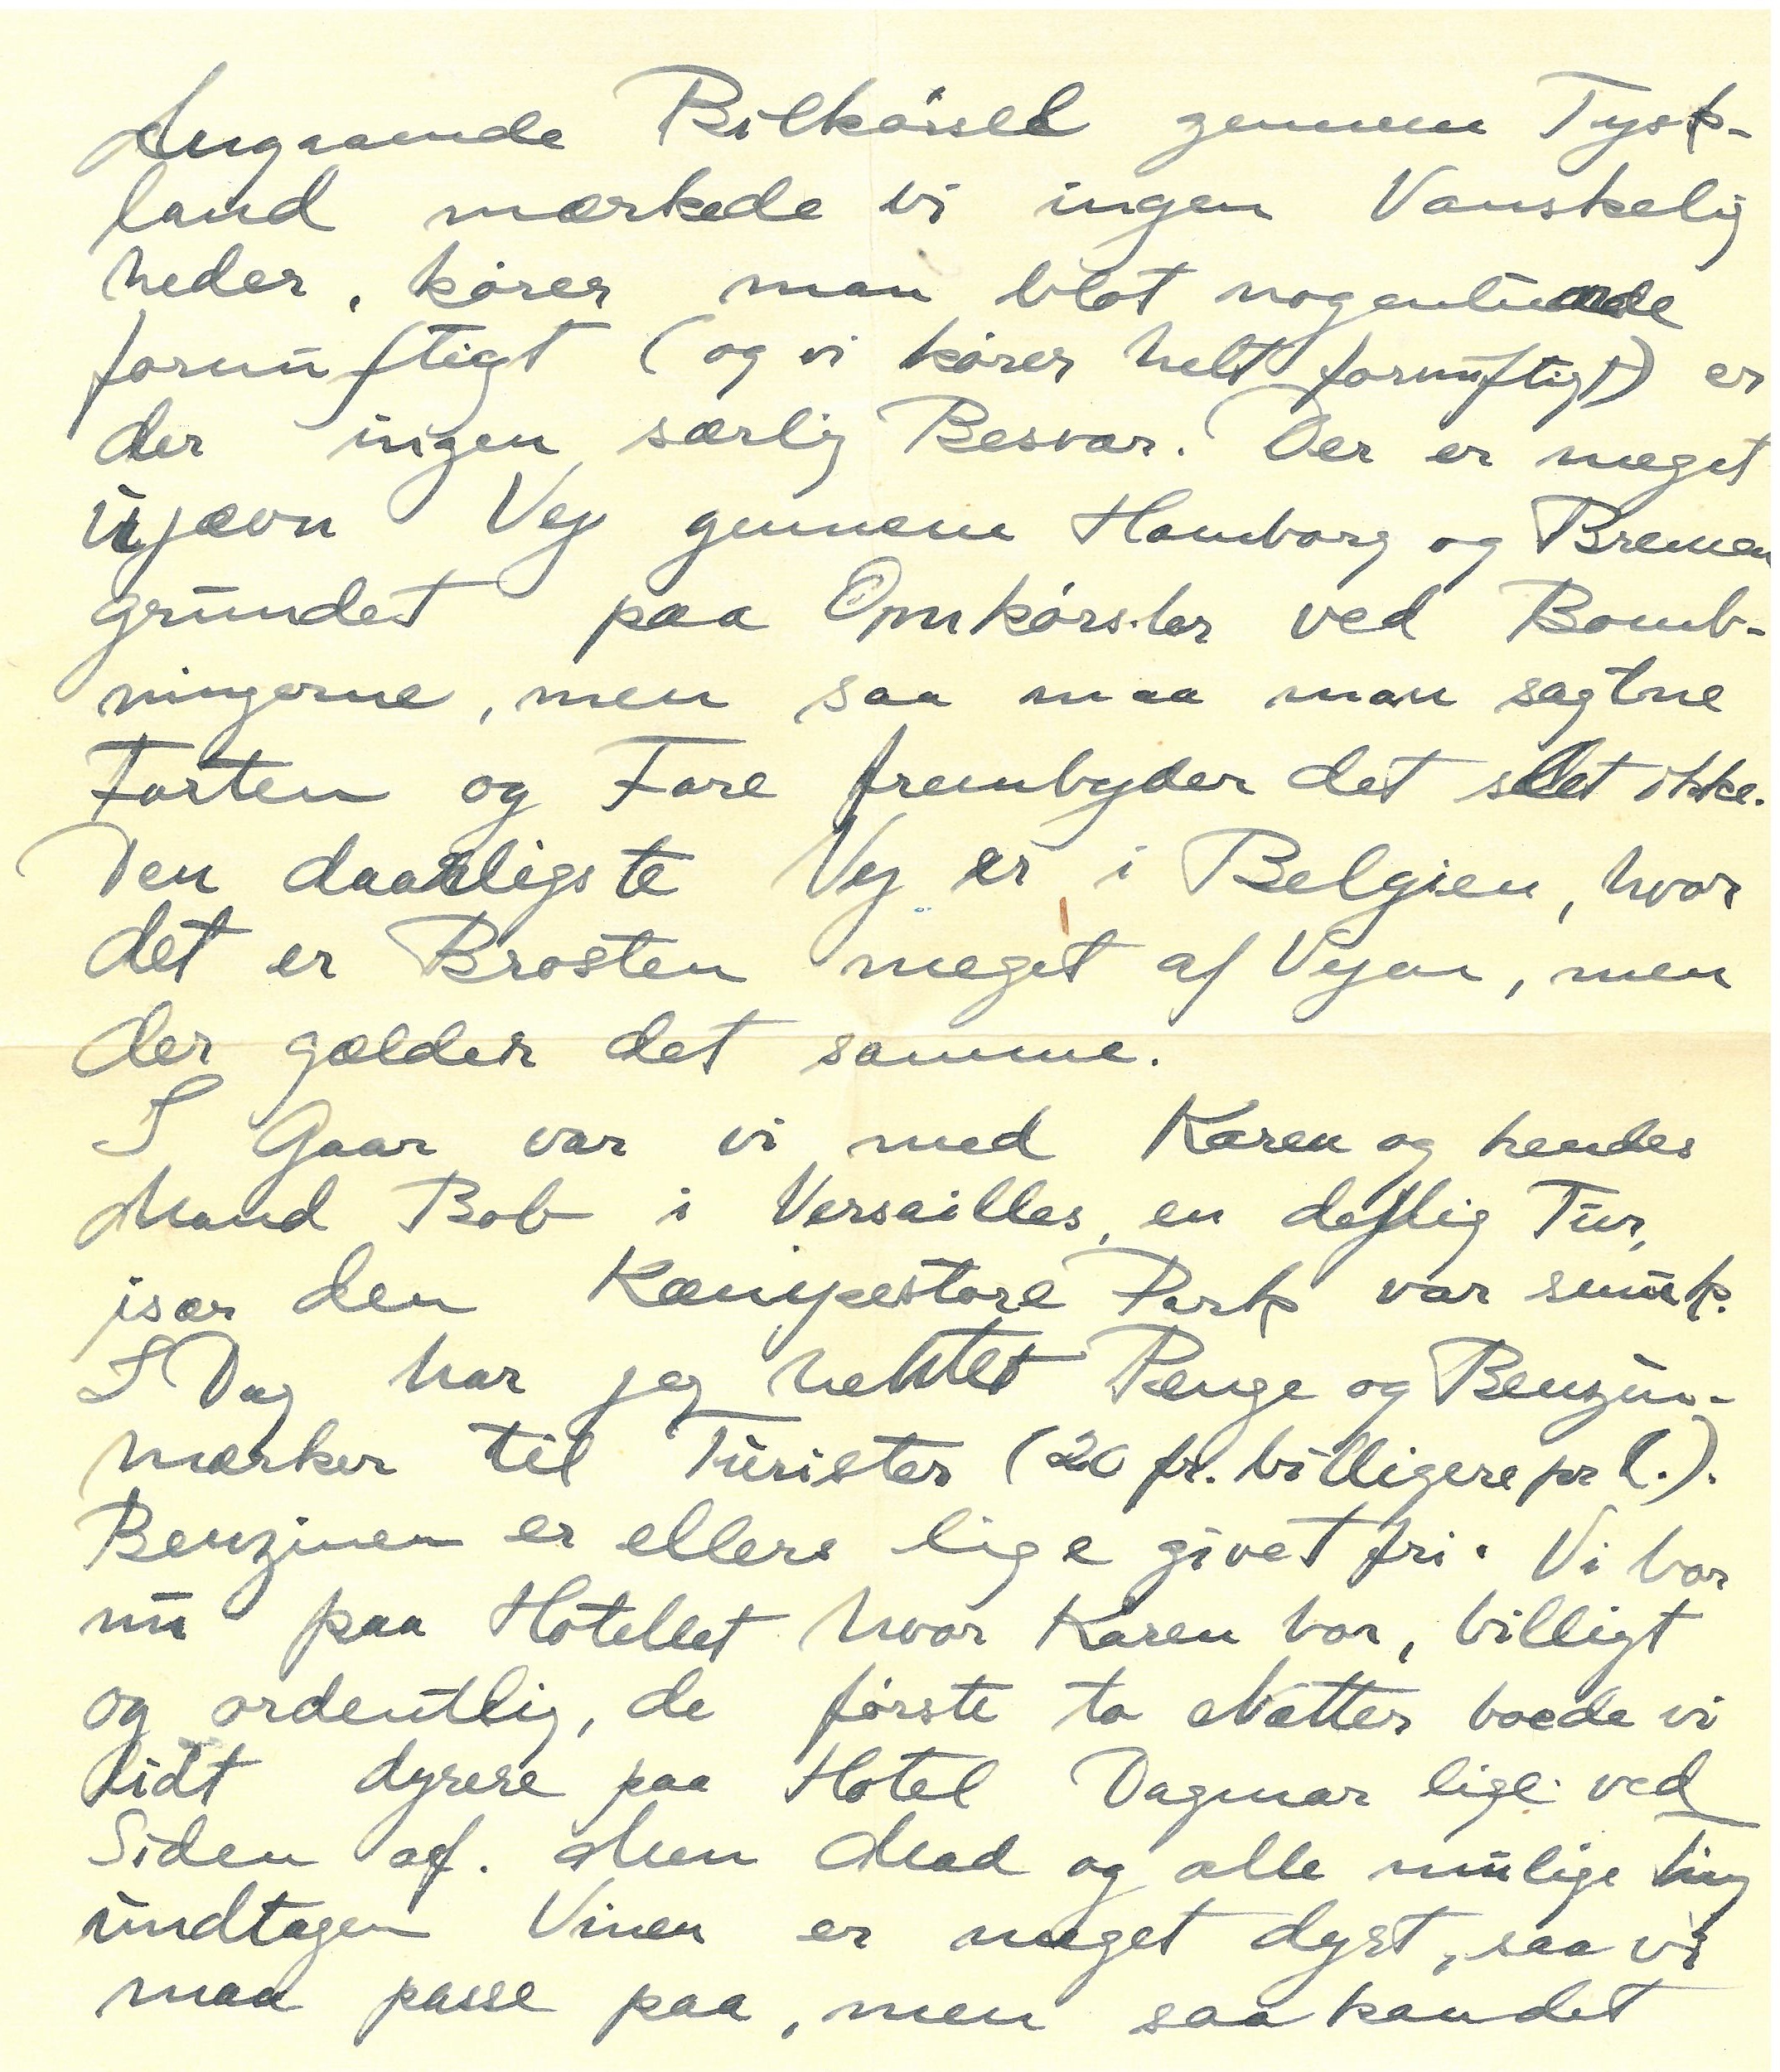 Angaaende Bilkørsel gennem Tysk-
land mærkede vi ingen Vanskelig
heder, kører man blot nogenlunde
fornuftigt (og vi kører helt fornuftigt) er
der ingen særlig Besvær. Der er meget
ujævn Vej gennem Hamborg og Bremen
grundet paa Omkørsler ved Bomb-
ningerne, men saa maa man sagtne
Farten og Fare frembyder det slet ikke.
Den daarligste Vej er i Belgien, hvor
det er Brosten meget af Vejen, men
der gælder det samme.
I Gaar var vi med Karen og hendes
Mand Bob i Versailles, en dejlig Tur,
især den Kæmpestore Park var smuk.
I Dag har jeg hentet Penge og Benzin-
mærker til Turister (20 fr. billigere pr l.).
Benzinen er ellers lige givet fri. Vi bor
nu paa Hotellet hvor Karen bor, billigt
og ordentlig, de første to Nætter boede vi
lidt dyrere paa Hotel Dagmar lige ved
Siden af. Men Mad og alle mulige Ting
undtagen Vinen er meget dyrt, saa vi
maa passe paa, men saa kan det